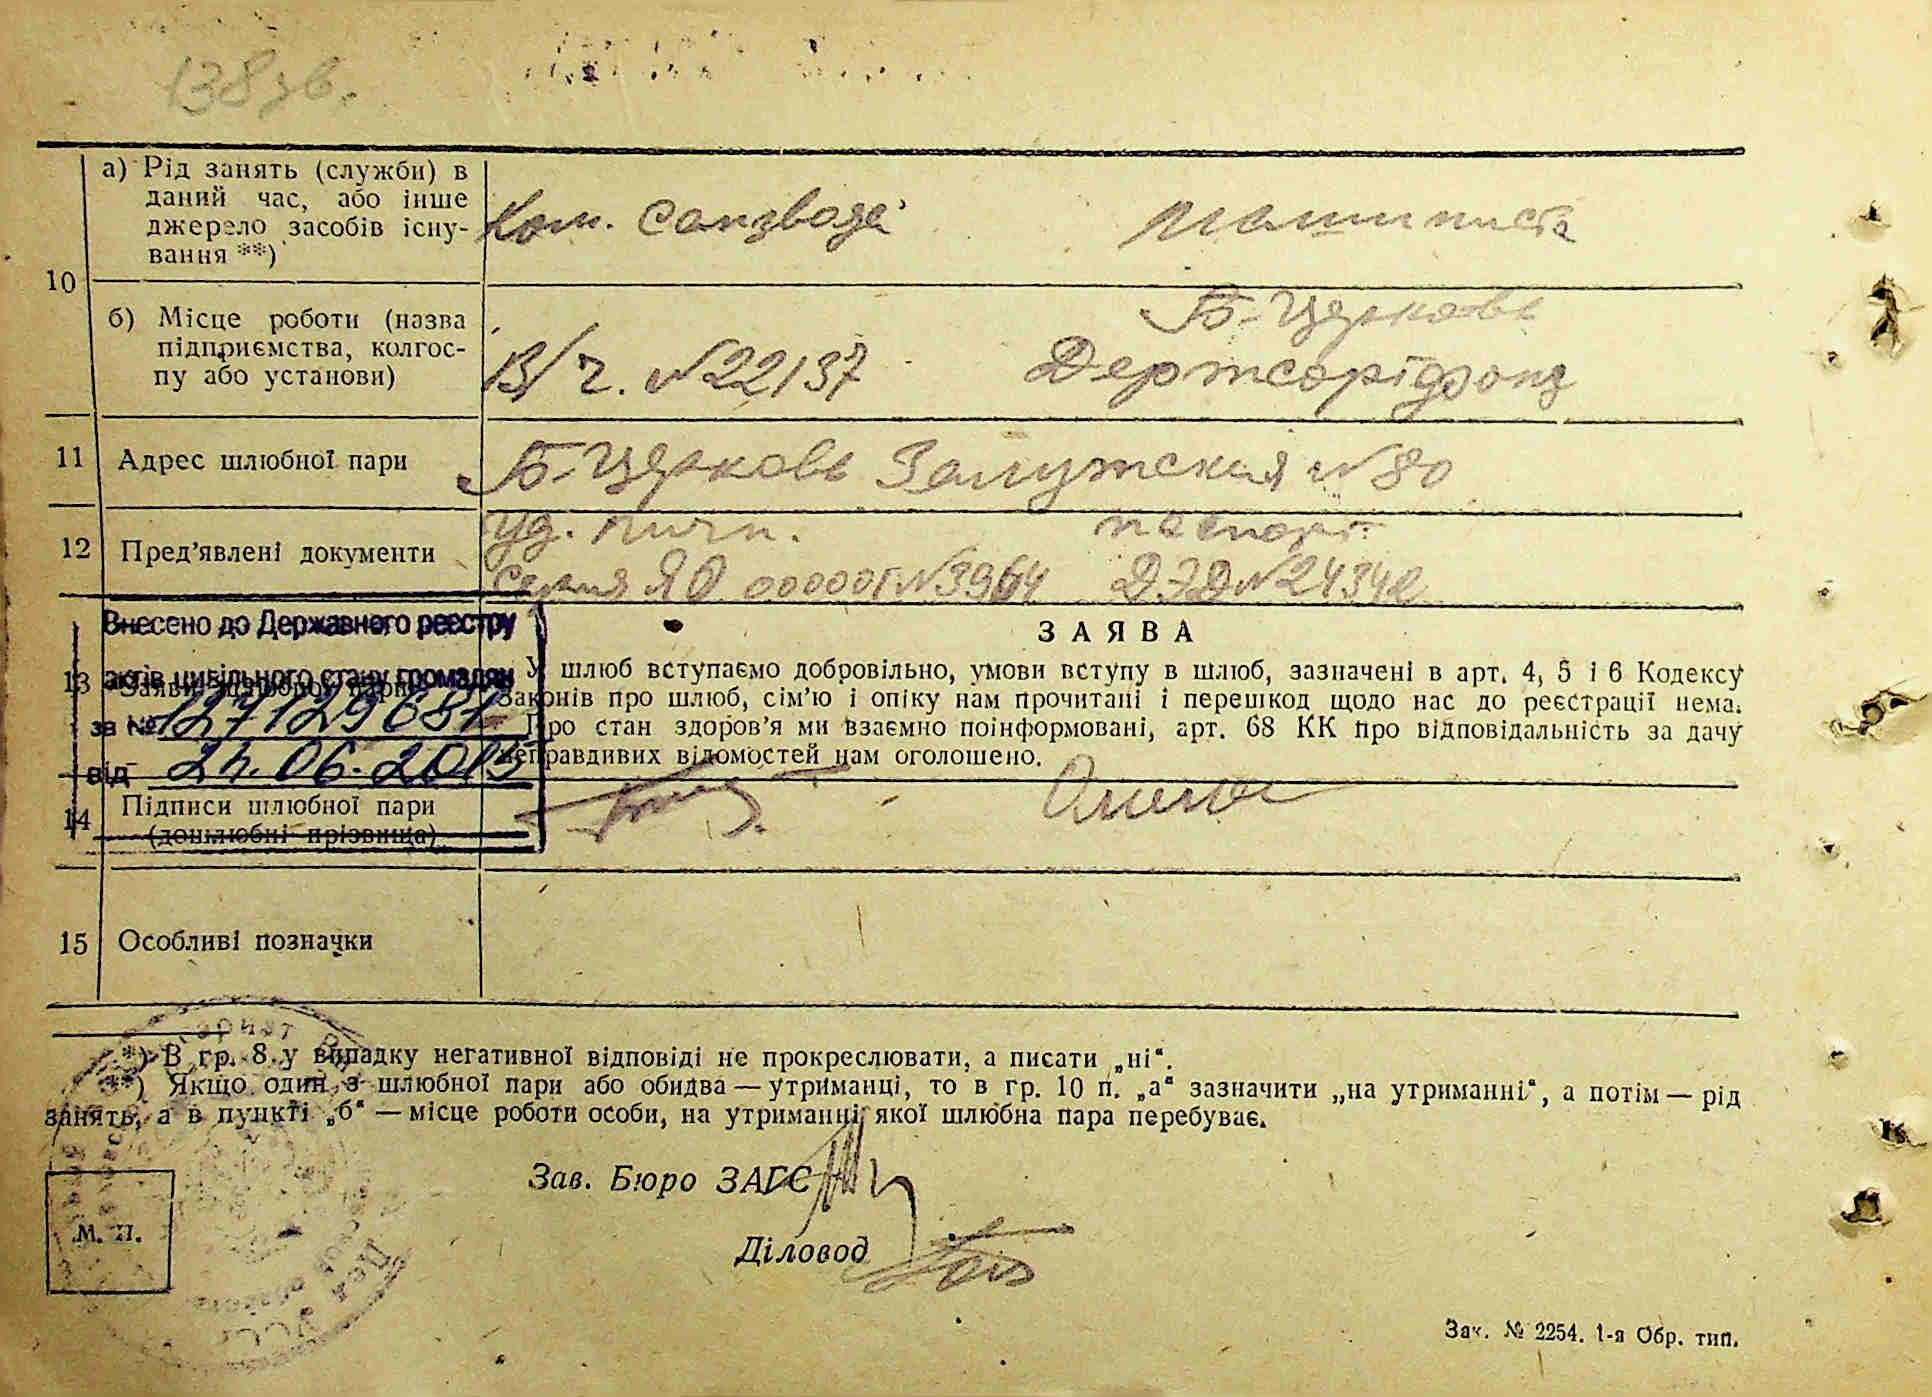 138 зв.
10
а) Рід занять (служби) в
даний час, або інше
джерело засобів існу-
вання **)
Ком. Санзвода
Машинистка
б) Місце роботи (назва
підприємства, колгос-
пу або установи)
В/ч. №22137
Б-Церковь
Держсортфонд
11 Адрес шлюбної пари
Б-Церковь Залужская №80
12 Пред'явлені документи
Уд. личн.
серия ЯО 00001 №3964
паспорт
ДЭД №24342
Внесено до Державного реєстру
актів цивільного стану громадян
за № 127129681
від 24.06.2015
13
ЗАЯВА
У шлюб вступаємо добровільно, умови вступу в шлюб, зазначені в арт. 4, 5 і 6 Кодексу
Законів про шлюб, сім'ю і опіку нам прочитані і перешкод щодо нас до реєстрації нема.
Про стан здоров'я ми взаємно поінформовані, арт. 68 КК про відповідальність за дачу
неправдивих відомостей нам оголошено.
14 Підписи шлюбної пари
(дошлюбні прізвища)
15 Особливі позначки
*) В гр. 8 у випадку негативної відповіді не прокреслювати, а писати „ні“.
**) Якщо один з шлюбної пари або обидва — утриманці, то в гр. 10 п. „а“ зазначити „на утриманні“, а потім — рід
занять, а в пункті „б“ — місце роботи особи, на утриманні якої шлюбна пара перебуває.
Зав. Бюро ЗАГС
Діловод
М. П.
Зак. № 2254. 1-я Обр. тип.